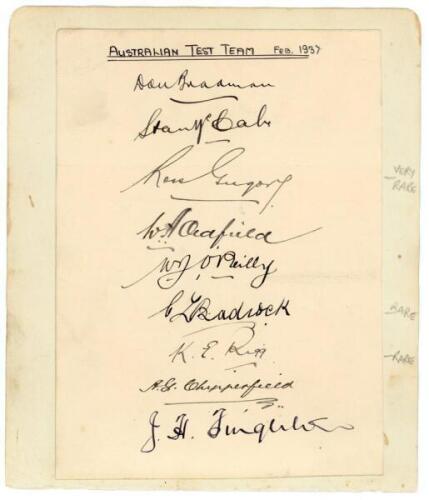 AUSTRALIAN TEST TEAM FEB. 1937
Don Bradman
Stan McCabe
Ross Gregory
VERY
RARE
W A Oldfield
W J. O'Reilly
C L Badcock
RARE
K. E. Rigg
RARE
A. G. Chipperfield
J. H. Fingleton